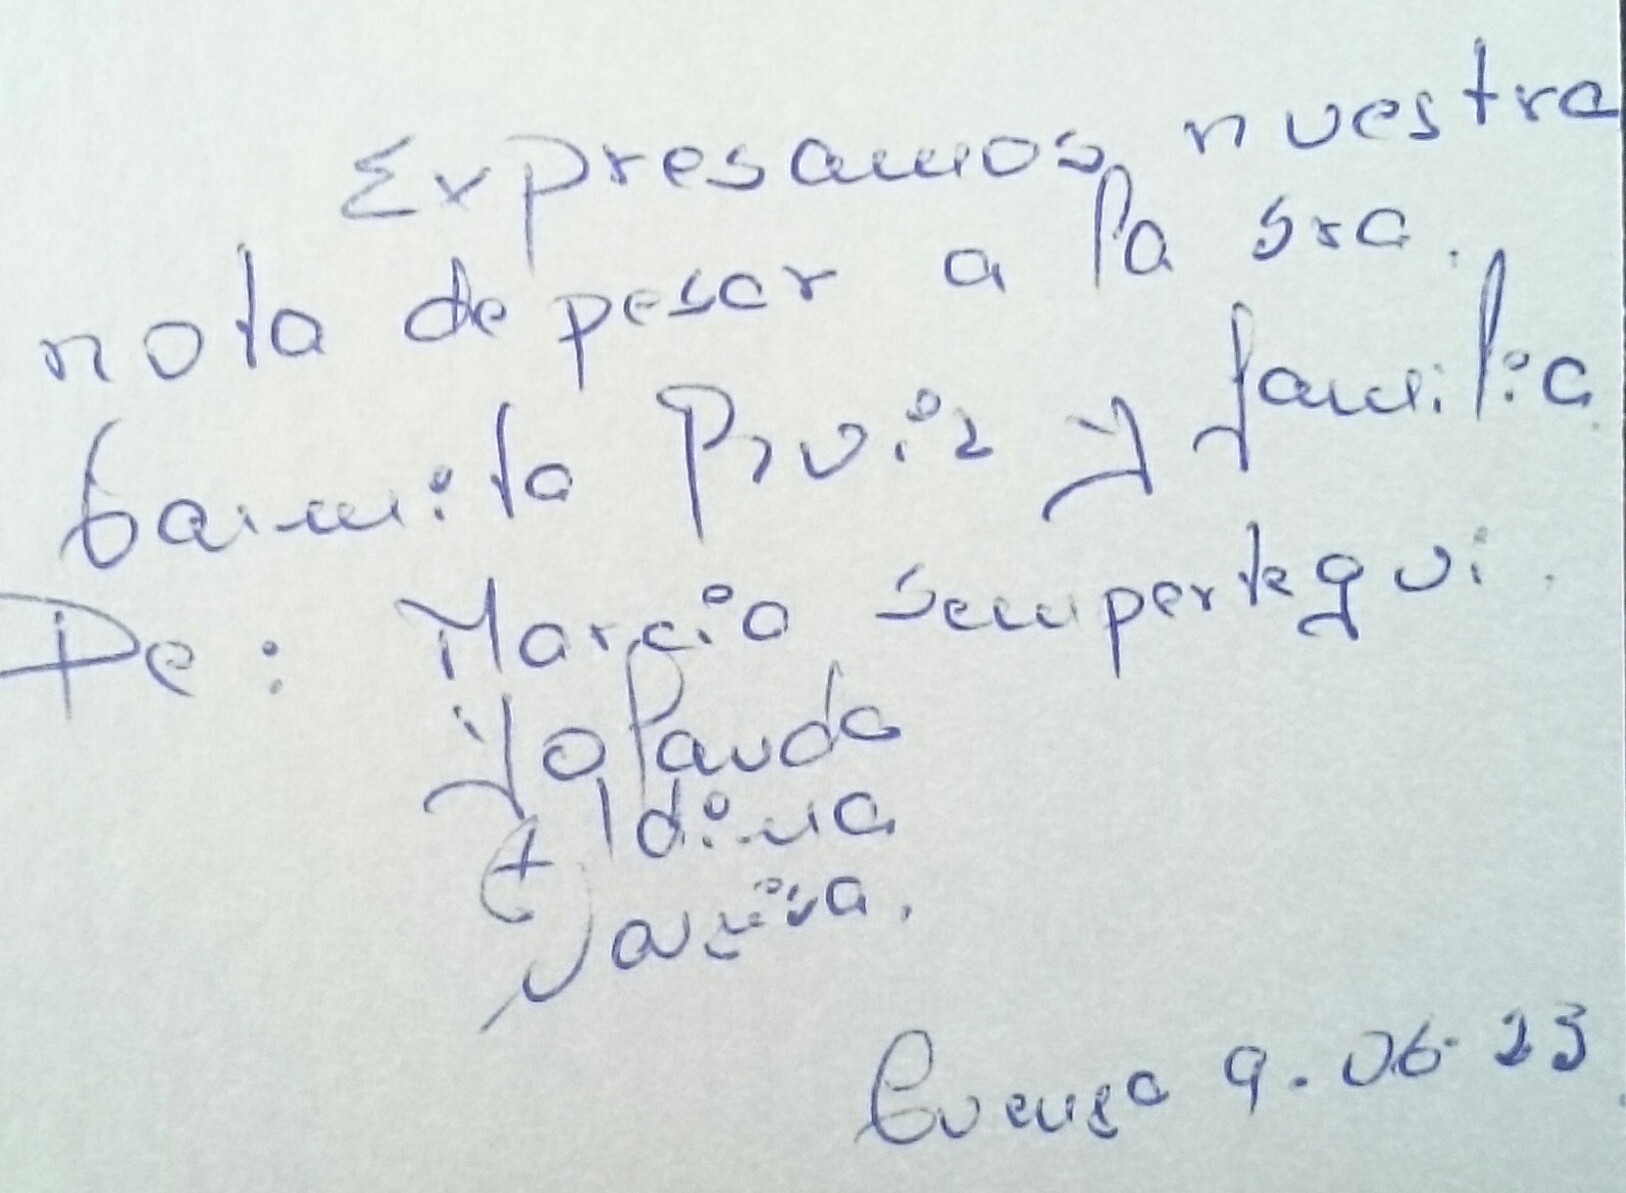 Expresamos nuestra
nota de pesar a la sra.
Carmita y familia
De: Marcia Sempertegui.
Yolanda
Aldina
Cuenca 9.06.23